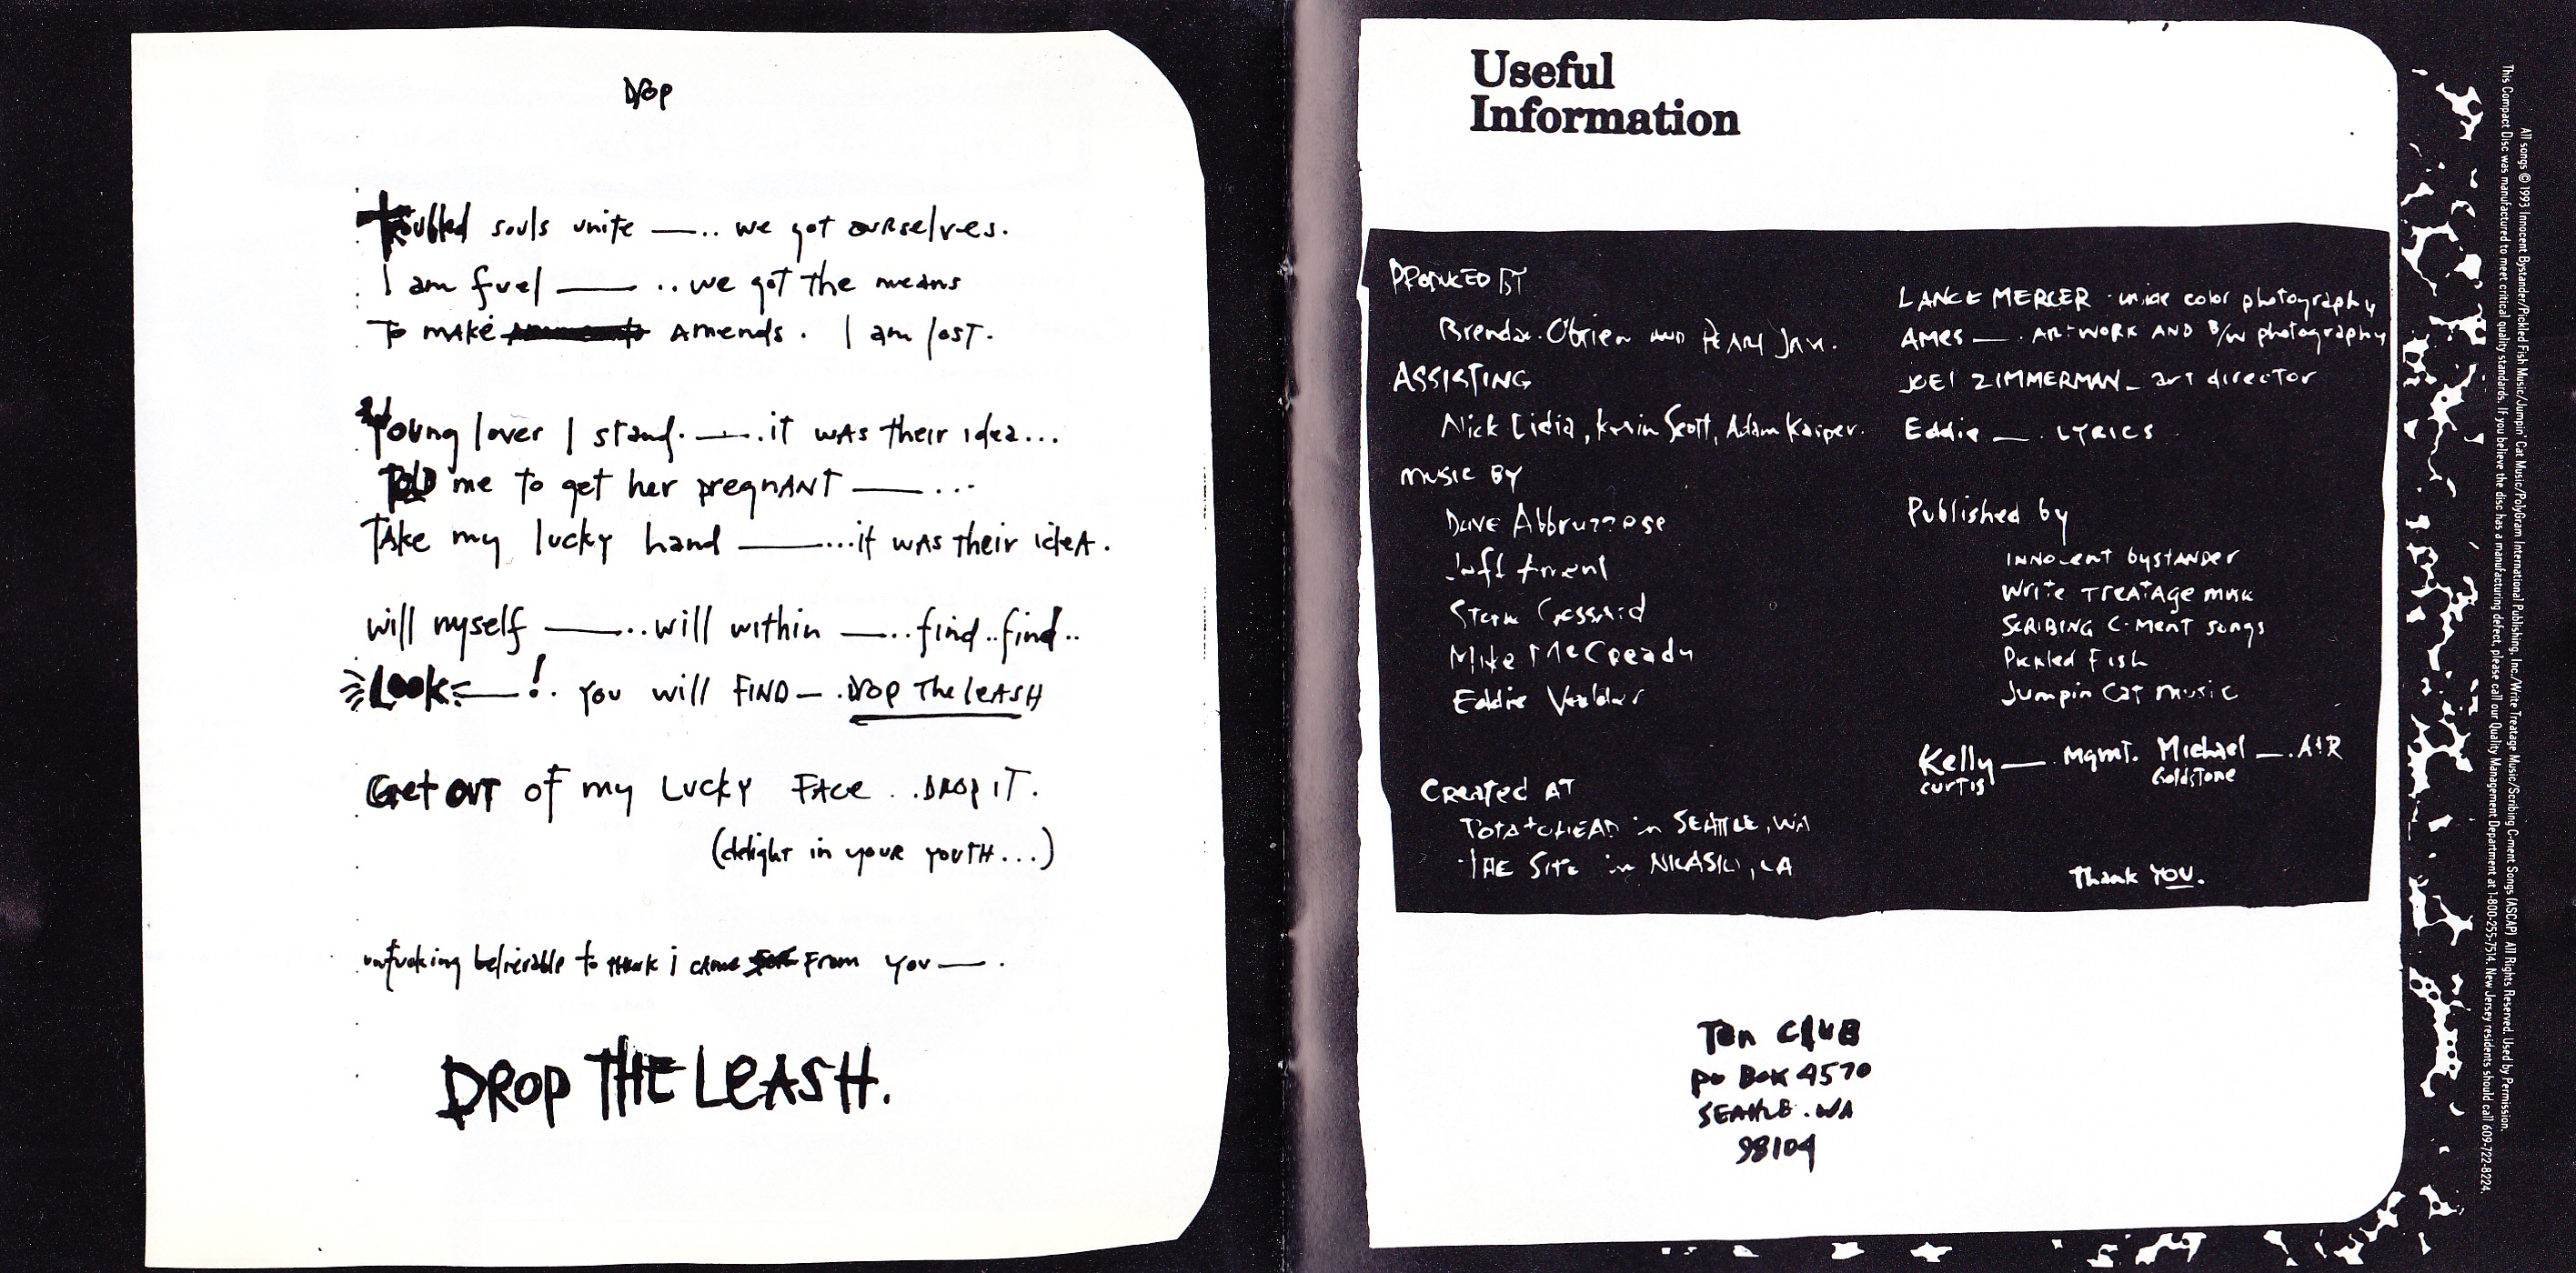 Drop
troubled souls unite —.. we got ourselves.
I am fuel — ..we got the means
To make Amends. I am lost.
Young lover I stand. —. .it was their idea...
Told me to get her pregnANT — ...
TAke my lucky hand —...it was their ideA.
will myself —..will within —..find..find..
LOOK —!. you will FIND—.Drop The leASH
Get OUT of my Lucky FAce ..DROP iT.
(delight in your youTH...)
unfucking believable to think i came From you—.
DROP THE LEASH.
Useful
Information
PRODUCED BY
Brendan O'Brien AND PEARL JAM.
ASSISTING
Nick Didia, Kevin Scott, Adam Kasper.
music BY
Dave Abbruzzese
Jeff Ament
Stone Gossard
Mike McCready
Eddie Vedder
Created AT
POTATOHEAD in SEATTLE, WA
THE Site in NICASIO, CA
LANCE MERCER - inside color photography
AMES —. ARTWORK AND B/W photography
JOEl ZIMMERMAN — art director
Eddie —. LYRICS
Published by
INNOcent bystANDer
Write TreatAge music
SCRIBING C-Ment songs
Pickled Fish
Jumpin Cat music
Kelly — mgmt. Michael —. A&R
curtis Goldstone
Thank YOU.
Ten CLUB
po Box 4570
SEATTLE . WA
98104
All songs © 1993 Innocent Bystander/Pickled Fish Music/Jumpin' Cat Music/PolyGram International Publishing, Inc./Write Treatage Music/Scribing C-ment Songs (ASCAP) All Rights Reserved. Used by Permission.
This Compact Disc was manufactured to meet critical quality standards. If you believe the disc has a manufacturing defect, please call our Quality Management Department at 1-800-255-7514. New Jersey residents should call 609-722-8224.